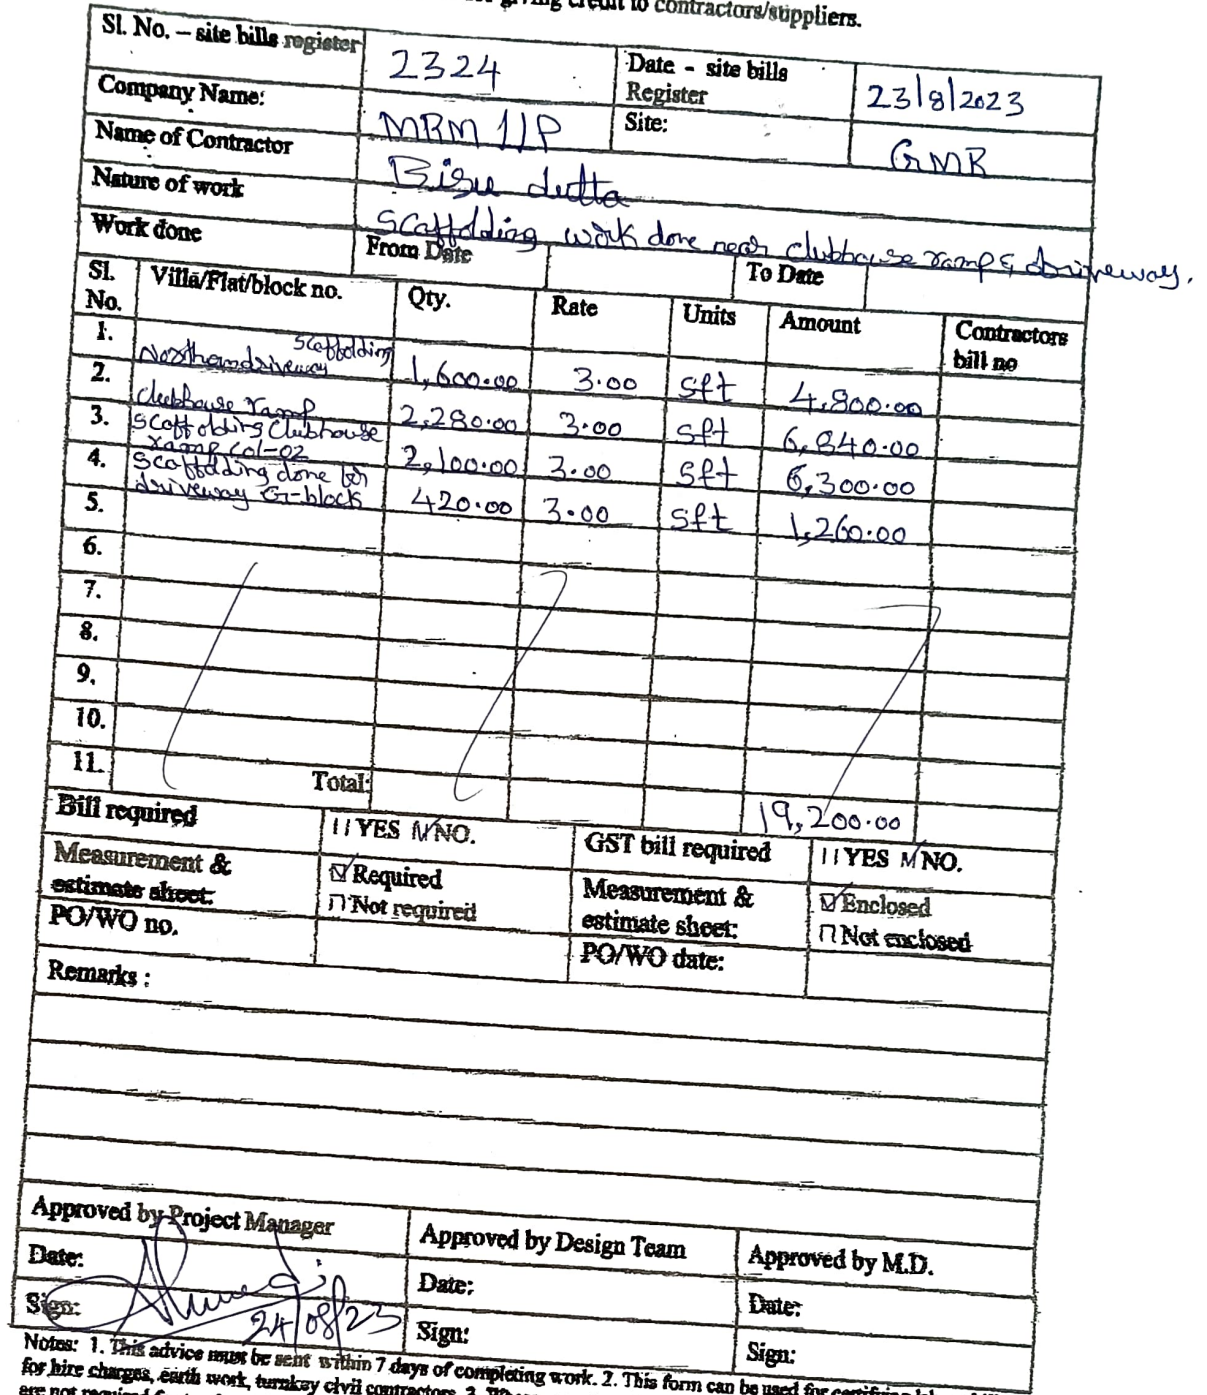 giving credit to contractors/suppliers.
Sl. No. – site bills register 2324 Date - site bills Register 23/8/2023
Company Name: MRM LLP Site: GMR
Name of Contractor Bisu dutta
Nature of work Scaffolding work done near clubhouse ramp & driveway.
Work done From Date To Date
Sl. No. Villa/Flat/block no. Qty. Rate Units Amount Contractors bill no
1. Northern driveway scaffolding 1,600.00 3.00 sft 4,800.00
2. clubhouse ramp 2,280.00 3.00 sft 6,840.00
3. Scaffolding Clubhouse ramp col-02 2,100.00 3.00 sft 6,300.00
4. Scaffolding done for driveway G-block 420.00 3.00 sft 1,260.00
5.
6.
7.
8.
9.
10.
11.
Total: 19,200.00
Bill required YES NO. GST bill required YES NO.
Measurement & estimate sheet: Required Measurement & estimate sheet: Enclosed
Not required Not enclosed
PO/WO no. PO/WO date:
Remarks :
Approved by Project Manager Approved by Design Team Approved by M.D.
Date: Date: Date:
Sign: 24/08/23 Sign: Sign:
Notes: 1. This advice must be sent within 7 days of completing work. 2. This form can be used for certifying
for hire charges, earth work, turnkey civil contractors.
are not required